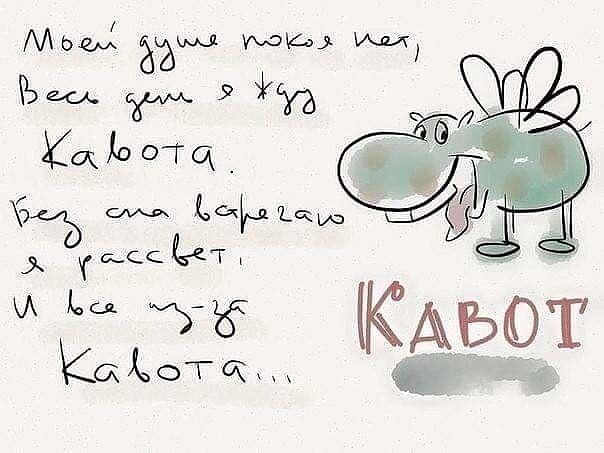 Моей душе покоя нет,
Весь день я жду
Кавота.
Без сна встречаю
я рассвет,
И все из-за
Кавота...
КАВОТ